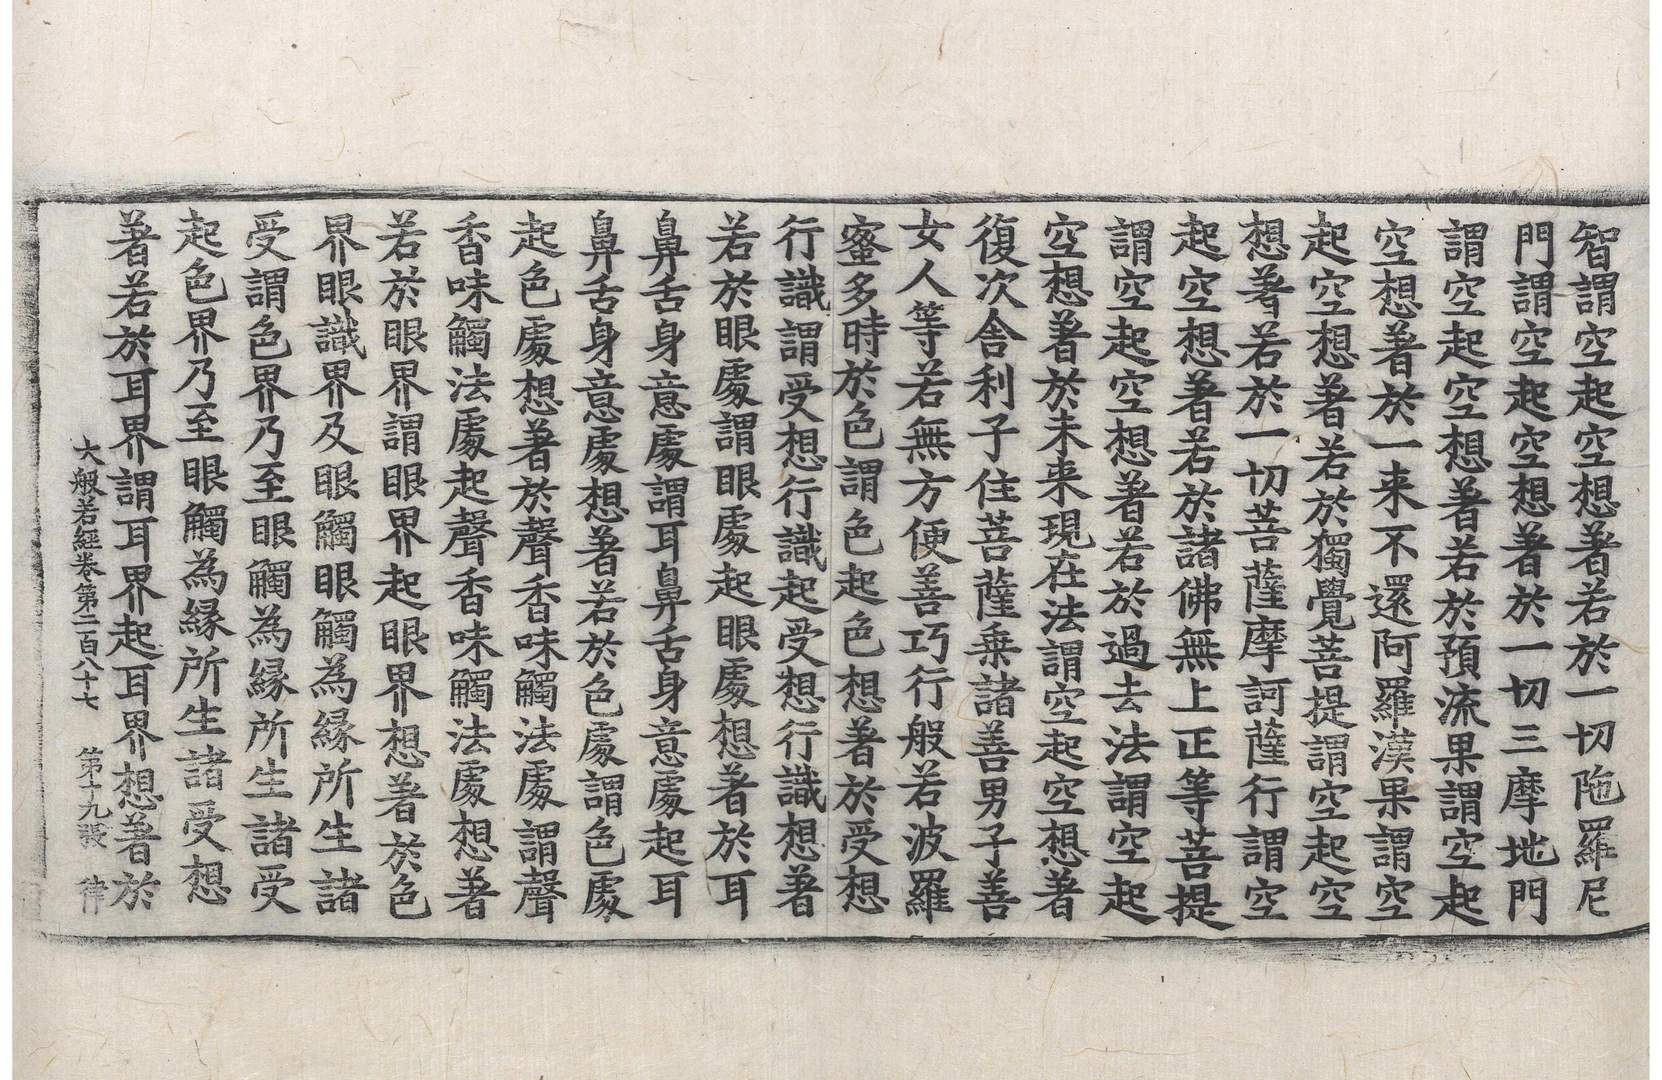 智謂空起空想著若於一切陁羅尼
門謂空起空想著於一切三摩地門
謂空起空想著若於預流果謂空起
空想著於一来不還阿羅漢果謂空
起空想著若於獨覺菩提謂空起空
想著若於一切菩薩摩訶薩行謂空
起空想著若於諸佛無上正等菩提
謂空起空想著若於過去法謂空起
空想著於未来現在法謂空起空想著
復次舍利子住菩薩乗諸善男子善
女人等若無方便善巧行般若波羅
蜜多時於色謂色起色想著於受想
行識謂受想行識起受想行識想著
若於眼處謂眼處起眼處想著於耳
鼻舌身意處謂耳鼻舌身意處起耳
鼻舌身意處想著若於色處謂色處
起色處想著於聲香味觸法處謂聲
香味觸法處起聲香味觸法處想著
若於眼界謂眼界起眼界想著於色
界眼識界及眼觸眼觸為縁所生諸
受謂色界乃至眼觸為縁所生諸受
起色界乃至眼觸為縁所生諸受想
著若於耳界謂耳界起耳界想著於
大般若經卷第二百八十七 第十九張 律